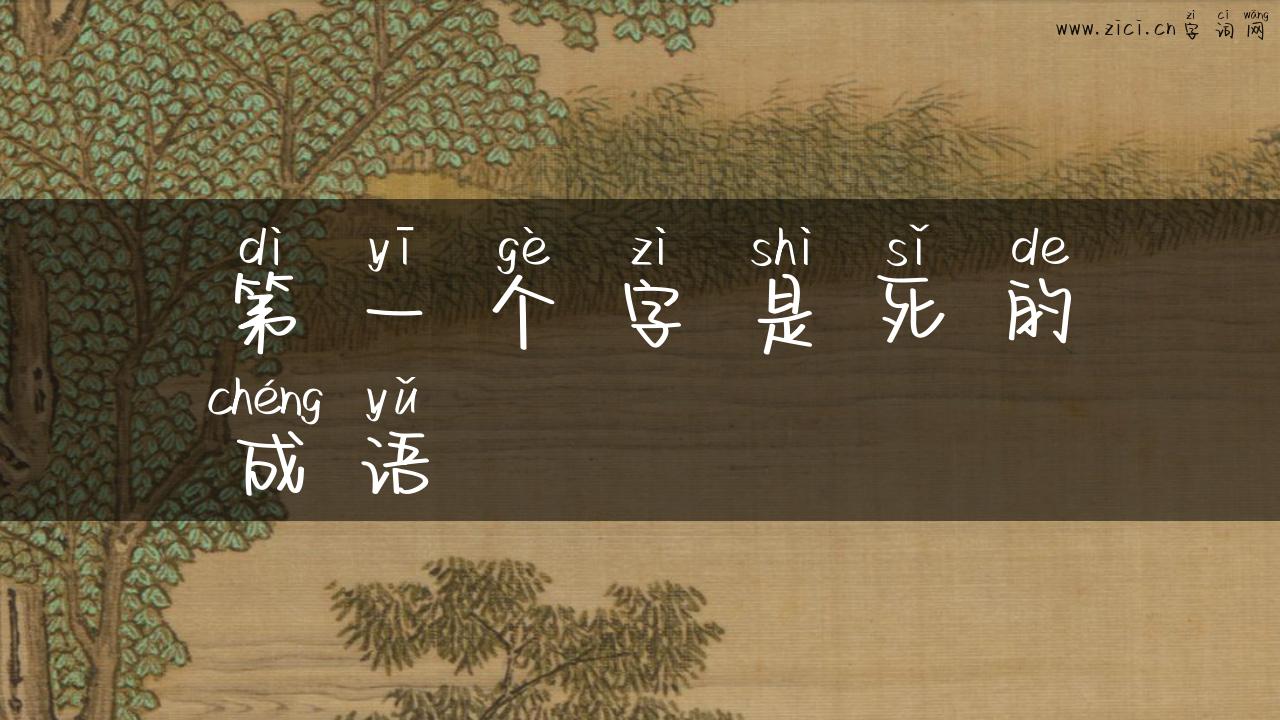 zì cí wǎng
www.zici.cn 字词网
dì yī gè zì shì sǐ de
第一个字是死的
chéng yǔ
成语